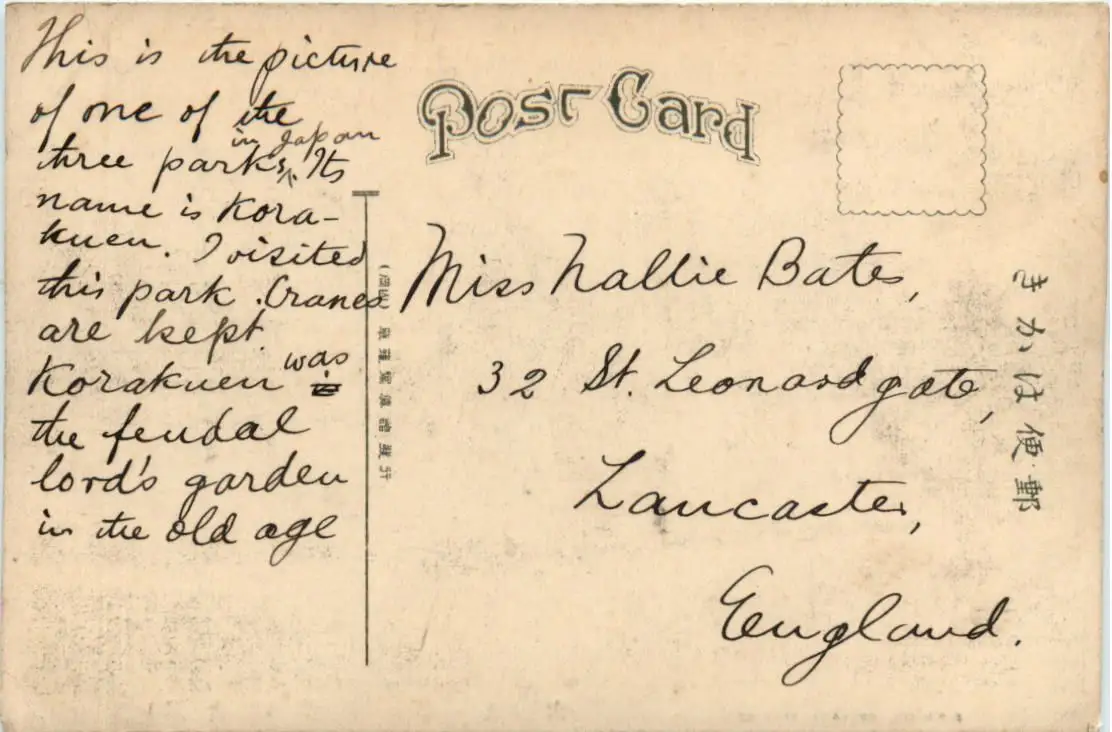 This is the picture
of one of the
three parks in Japan. Its
name is Kora-
kuen. I visited
this park. Cranes
are kept.
Korakuen was
the feudal
lord's garden
in the old age
Post Card
Miss Nallie Bates,
32 St. Leonardgate,
Lancaster,
England.
郵便はかき